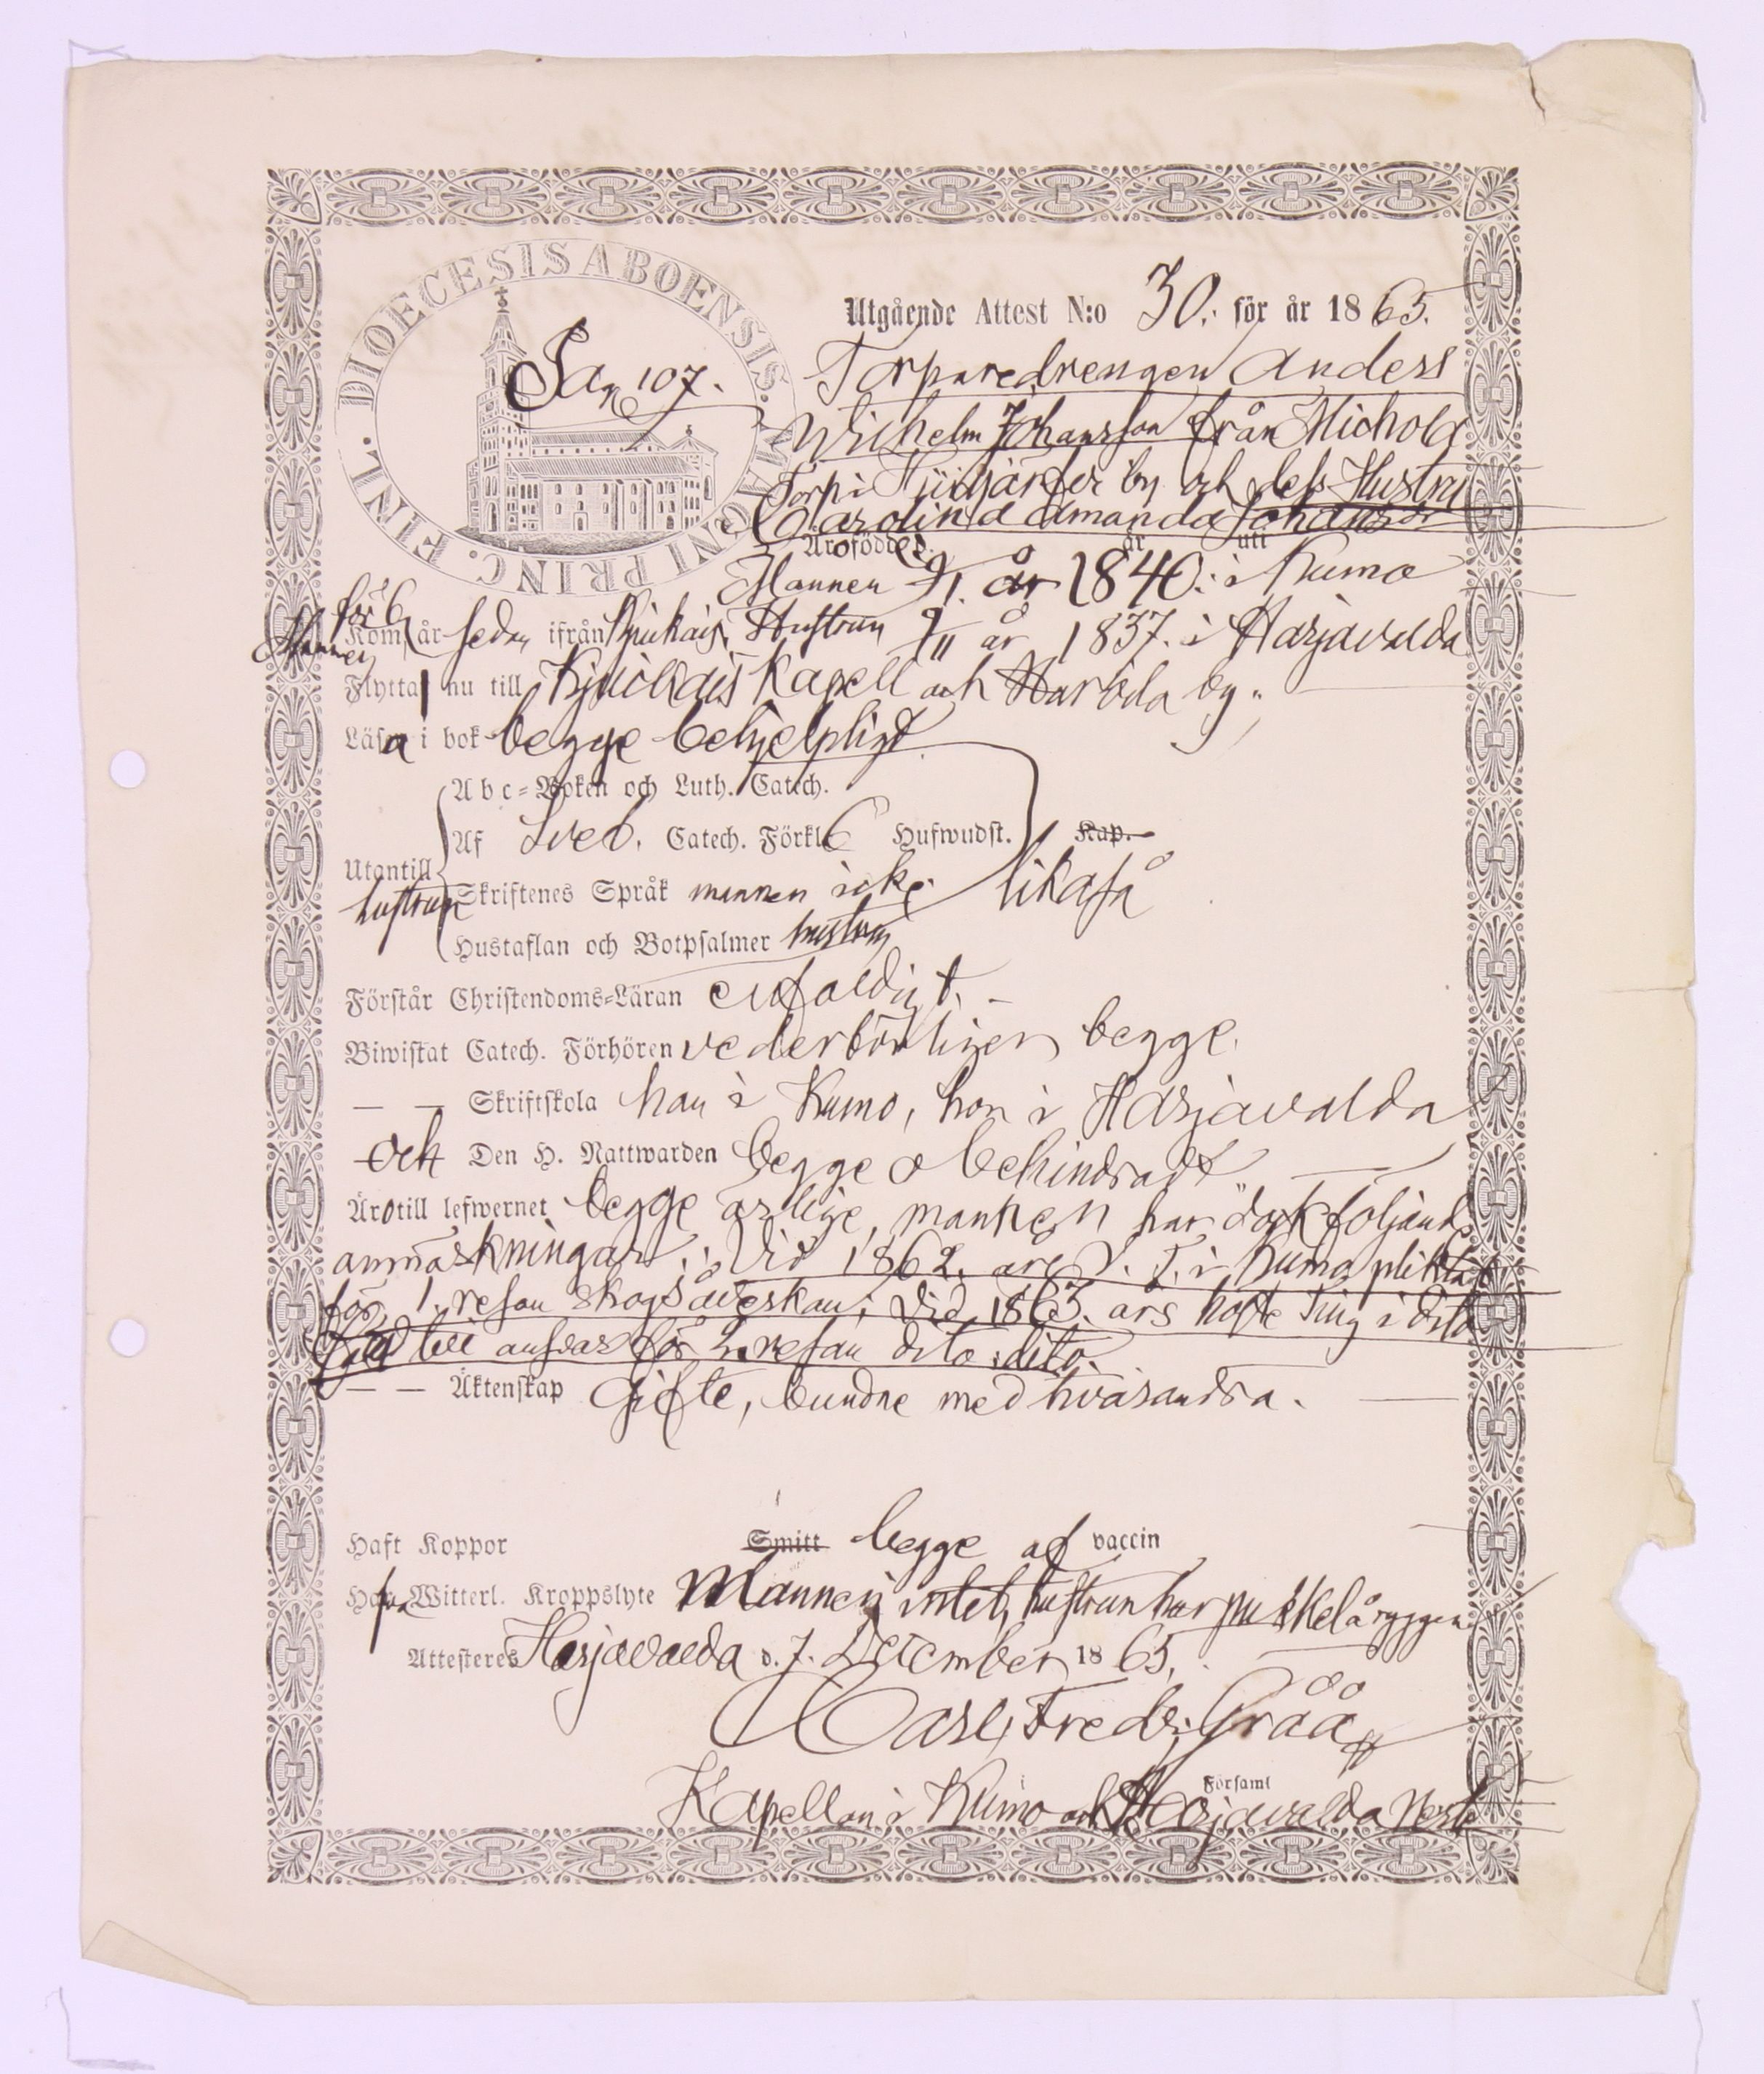 DIOECESIS ABOENSIS. MAGNI PRINC. FINL.
Utgående Attest N:o 30. för år 1865.
Pag 107.
Torparedrengen Anders
Wilhelm Johansson från Nichola
Torp i by och dess Hustru
Carolina Amanda Johansdr
Äro födde år uti
Mannen 9/1. år 1840. i Kumo
Mannen för 6
Kom år sedan ifrån Kjukais, Hustrun 9/11 år 1837. i Harjavalda
Flytta nu till Kjulais Kapell och Harola by.
Läsa i bok begge behjelpligt
Abc-Boken och Luth. Catech.
Af Sveb. Catech. Förkl. 6 Hufwudst. Kap.
Utantill
hustrun Skriftenes Språk mannen icke likaså
Hustaflan och Botpsalmer hustrun
Förstår Christendoms-Läran enfaldigt.
Biwistat Catech. Förhören vederbörligen begge.
— — Skriftskola han i Kumo, hon i Harjavalda
och Den H. Nattwarden begge obehindradt
Äro till lefwernet begge ärlige, mannen har dock följande
anmärkningar: Vid 1862. are V. T. i Kumo pliktat
för 1. resan skogsåverkan; Vid 1863. års höste Ting i dito
till ansvar för 2. resan dito dito.
— — Äktenskap Gifte, bundne med hvarandra.
Haft Koppor Smitt begge af vaccin
Hafva Witterl. Kroppslyte Mannen intet, hustrun har puckel å ryggen.
Attesteres Harjavalda d. 7. December 1865.
Carl Fredr. Gråå
Kapellan i Kumo och Harjavalda Församl